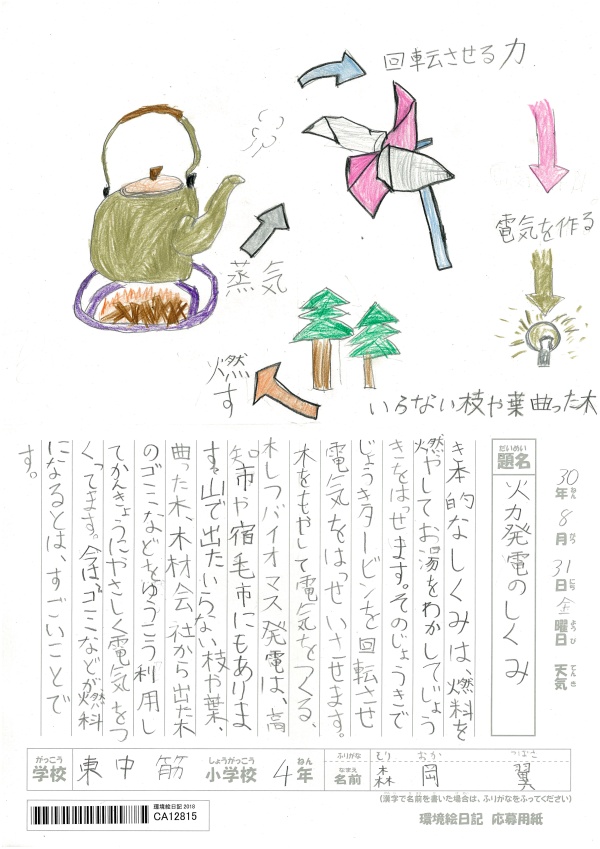 回転させる力
電気を作る
蒸気
燃す
いらない枝や葉曲った木
だいめい
題名
火力発電のしくみ
30年 8月 31日 金曜日 天気
ねん がつ にち ようび てんき
き本的なしくみは、燃料を
燃やしてお湯をわかしてじょう
きをはっせます。そのじょうきで
じょうきタービンを回転させ
電気をはっせいさせます。
木をもやして電気をつくる、
木しつバイオマス発電は、高
知市や宿毛市にもありま
す。山で出たいらない枝や葉、
曲った木、木材会社から出た木
のゴミなどをゆうこう利用し
てかんきょうにやさしく電気をつ
くってます。今は、ゴミなどが燃料
になるとは、すごいことで
す。
がっこう しょうがっこう ねん ふりがな もり おか つばさ
学校 東中筋 小学校 4年 なまえ 名前 森岡 翼
(漢字で名前を書いた場合は、ふりがなをふってください)
環境絵日記 2018
CA12815
環境絵日記 応募用紙